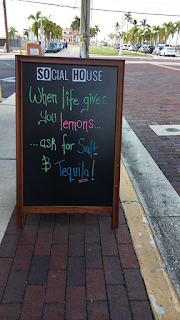 SOCIAL HOUSE
When life gives
you lemons...
...ask for Salt
& Tequila!